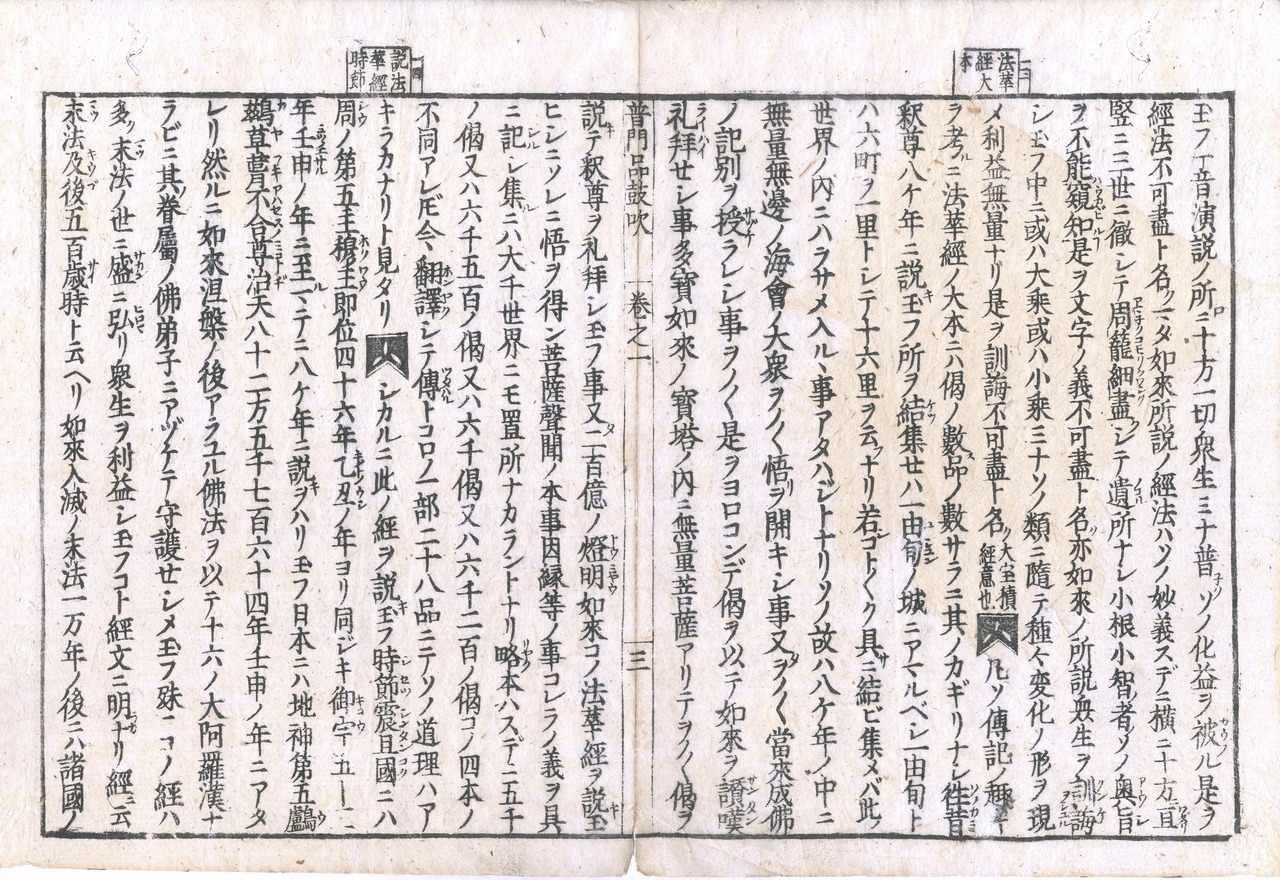 一三 法華經大本
玉フ一音演説ノ所ロ十方一切衆生ミナ普ソノ化益ヲ被ル是ヲ
經法不可盡ト名ク又タ如來所説ノ經法ハソノ妙義スデニ横ニ十方ニ亘
竪ニ三世ニ徹シテ周籠細盡シテ遺所ナシ小根小智ノ者ソノ奥旨
ヲ不能窺知是ヲ文字ノ義不可盡ト名亦如來ノ所説衆生ヲ訓誨
シ玉フ中ニ或ハ大乘或ハ小乘ミナソノ類ニ隨テ種々変化ノ形ヲ現
メ利益無量ナリ是ヲ訓誨不可盡ト名ク大宝積經意也 凡ソ傳記ノ趣
ヲ考ルニ法華經ノ大本ニハ偈ノ數品ノ數サラニ其ノカギリナシ往昔
釈尊八ケ年ニ説玉フ所ヲ結集セハ一由旬ノ城ニアマルベシ一由旬ト
ハ六町ヲ一里トシテ十六里ヲ云ナリ若シコトゴトク具ニ結ビ集メバ此ノ
世界ノ内ニハヲサメ入ルヽ事アタハジトナリソノ故ハ八ケ年ノ中ニ
無量無邊ノ海會ノ大衆ヲノ〱悟リヲ開キシ事又タヲノ〱當來成佛
ノ記別ヲ授ラレシ事ヲノ〱是ヲヨロコンデ偈ヲ以テ如來ヲ讃嘆
礼拜セシ事多寳如來ノ寳塔ノ内ニ無量菩薩アリテヲノ〱偈ヲ
普門品鼓吹 卷之一 三
一四 説法華經時節
説テ釈尊ヲ礼拜シ玉フ事又タ二百億ノ燈明如來コノ法華經ヲ説玉
ヒシニソレニ悟ヲ得ン菩薩聲聞ノ本事因縁等ノ事コレラノ義ヲ具
ニ記シ集ルニハ大千世界ニモ置所ナカラントナリ略本ハスデニ五千
ノ偈又ハ六千五百ノ偈又ハ六千偈又ハ六千二百ノ偈コノ四本ノ
不同アレ𪜈今翻譯シテ傳トコロノ一部二十八品ニテソノ道理ハア
キラカナリト見タリ シカルニ此ノ經ヲ説玉フ時節震旦國ニハ
周ノ第五主穆王即位四十六年乙丑ノ年ヨリ同ジキ御宇五十二
年壬申ノ年ニ至ルマテニ八ケ年ニ説ヲハリ玉フ日本ニハ地神第五鸕
鷀草葺不合尊治天八十二万五千七百六十四年壬申ノ年ニアタ
レリ然ルニ如來涅槃ノ後アラユル佛法ヲ以テ十六ノ大阿羅漢ナ
ラビニ其ノ眷屬ノ佛弟子ニアヅケテ守護セシメ玉フ殊ニコノ經ハ
多ク末法ノ世ニ盛ニ弘リ衆生ヲ利益シ玉フコト經文ニ明ナリ經ニ云
末法及後五百歳時ト云ヘリ如來入滅ノ末法一万年ノ後ニハ諸國ノ